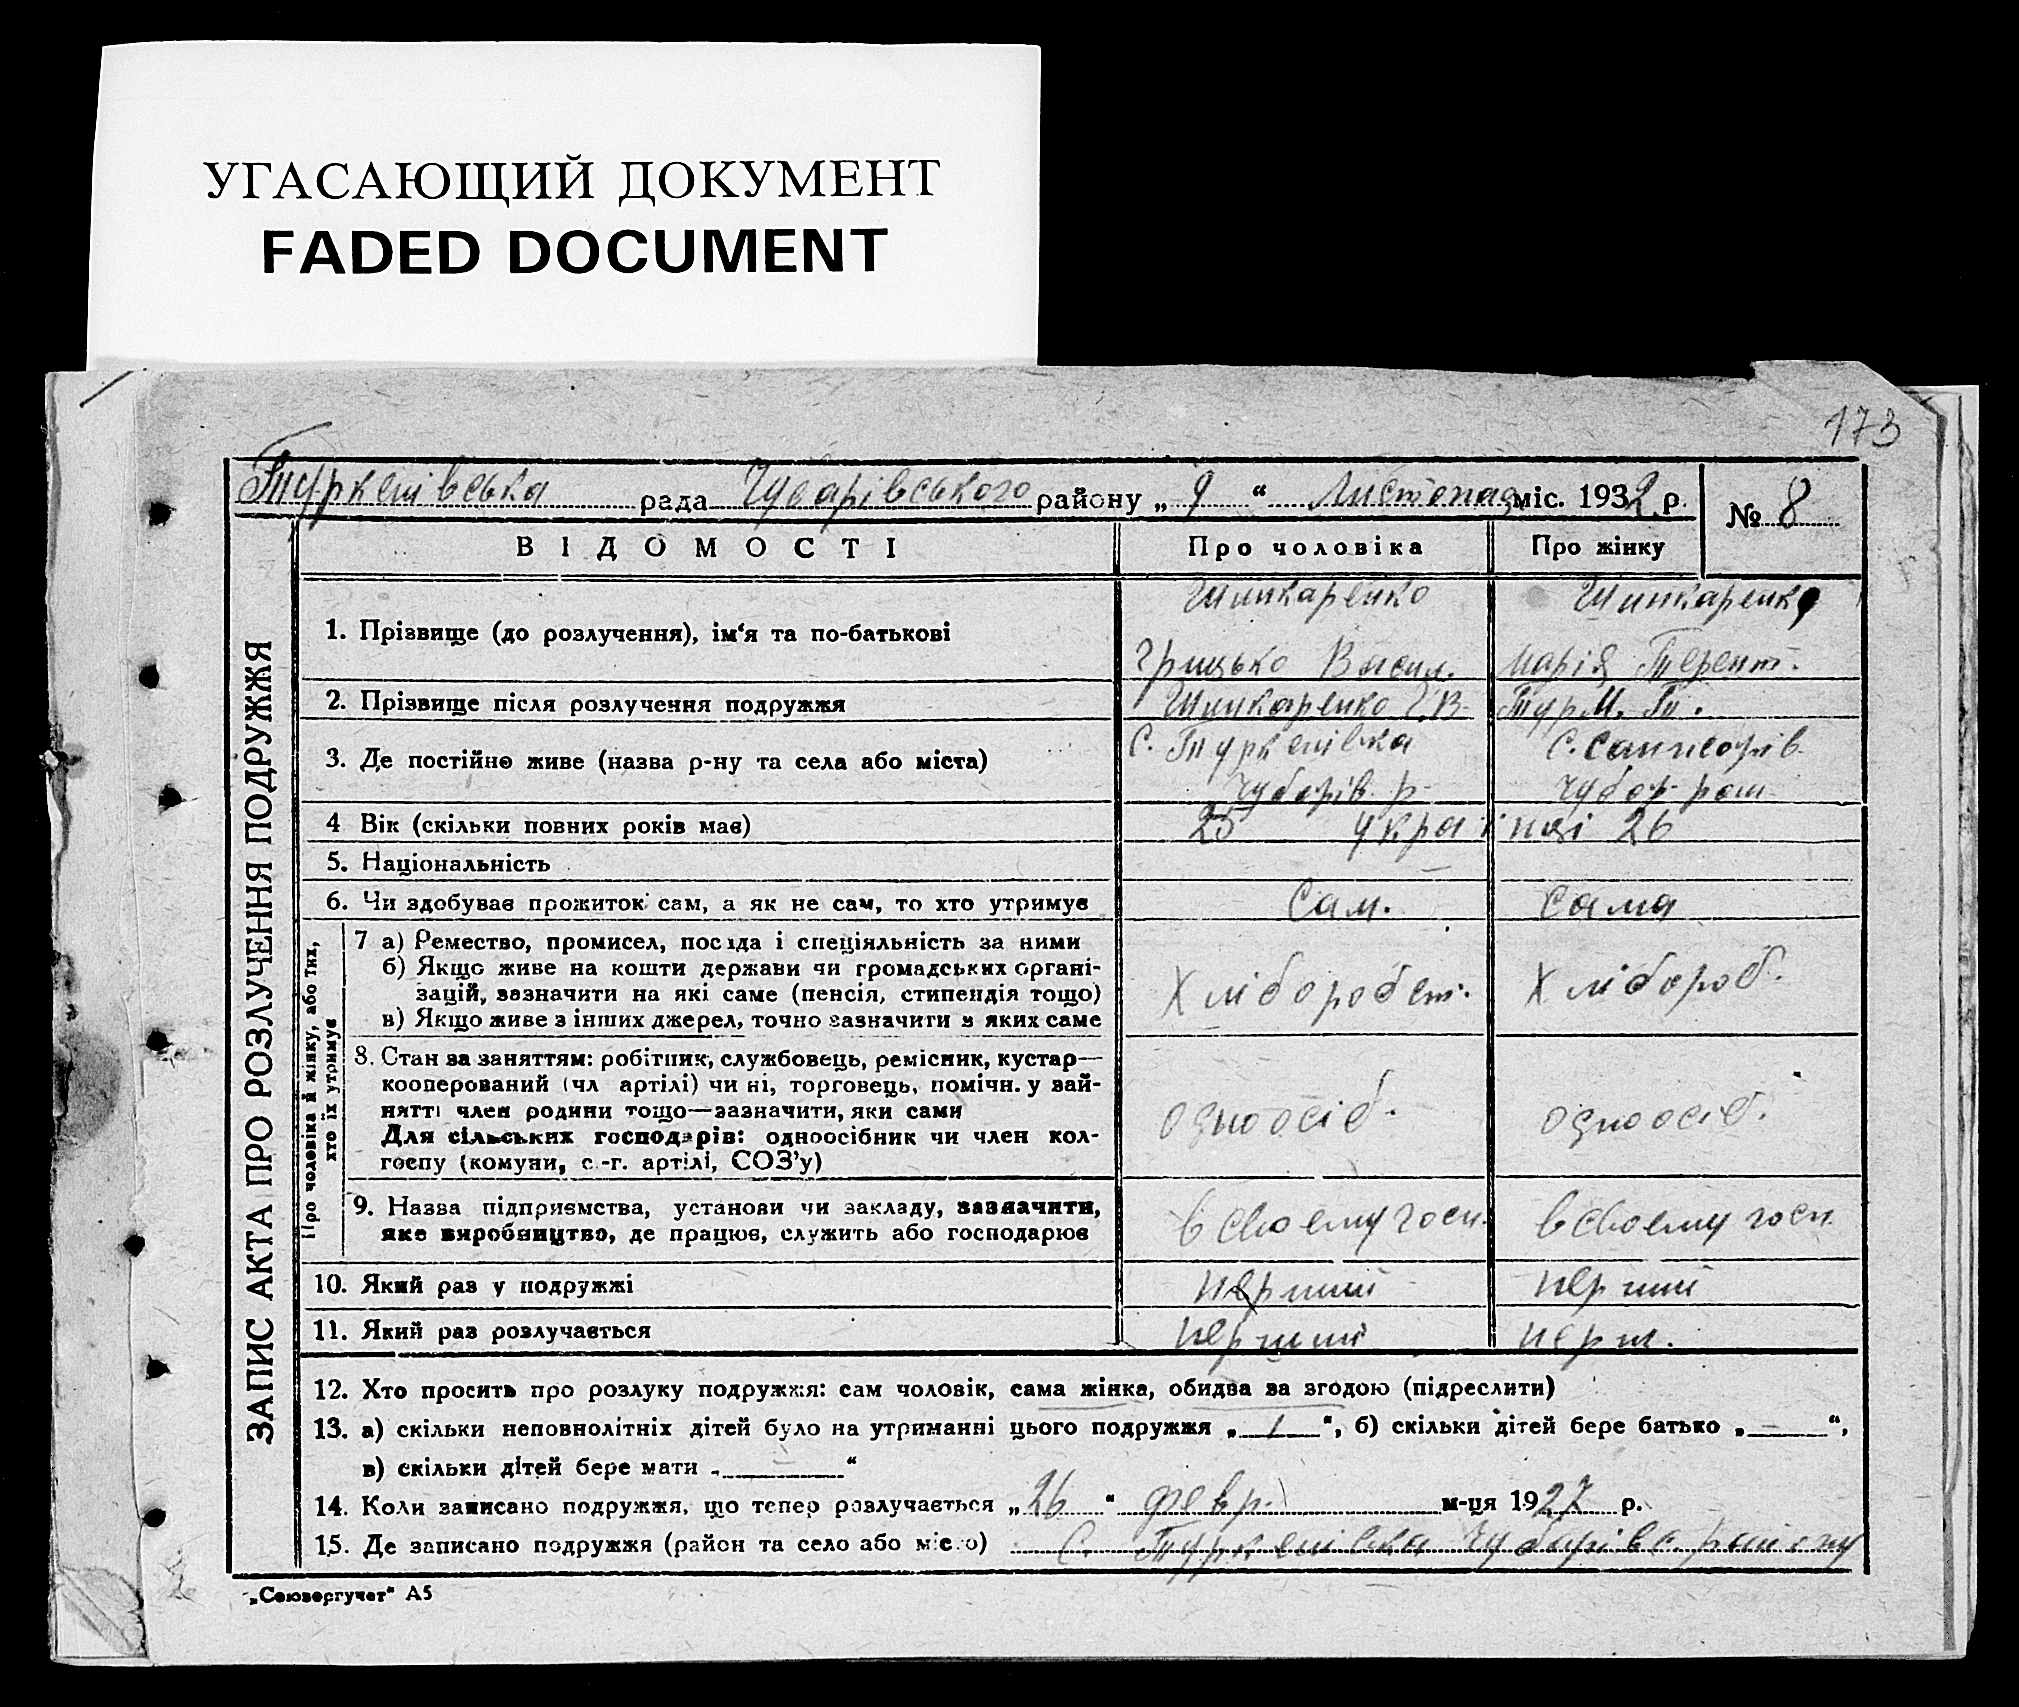 УГАСАЮЩИЙ ДОКУМЕНТ
FADED DOCUMENT
173
Туркенівська рада Чубарівського району „ 9 “ Листопад міс. 1932 р.
№ 8
ЗАПИС АКТА ПРО РОЗЛУЧЕННЯ ПОДРУЖЖЯ
ВІДОМОСТІ
Про чоловіка
Про жінку
1. Прізвище (до розлучення), ім‘я та по-батькові
Шинкаренко
Грицько Васил.
Шинкаренко
Марія Терент.
2. Прізвище після розлучення подружжя
Шинкаренко Г.В.
Тур М. Т.
3. Де постійно живе (назва р-ну та села або міста)
С. Туркенівка
Чубарів. р-
С.
Чубар. рай
4 Вік (скільки повних років має)
25 україн ці 26
5. Національність
6. Чи здобуває прожиток сам, а як не сам, то хто утримує
Сам.
Сама
Про чоловіка й жінку, або тих,
хто їх утримує
7 а) Ремество, промисел, посада і спеціяльність за ними
б) Якщо живе на кошти держави чи громадських органі-
зацій, зазначити на які саме (пенсія, стипендія тощо)
в) Якщо живе з інших джерел, точно зазначити з яких саме
Хлібороб
Хлібороб.
8. Стан за заняттям: робітник, службовець, ремісник, кустар—
кооперований (чл артілі) чи ні, торговець, помічн. у зай-
нятті член родини тощо—зазначити, яки сами
Для сільських господарів: одноосібник чи член кол-
госпу (комуни, с.-г. артілі, СОЗ’у)
одноосіб.
одноосіб.
9. Назва підприємства, установи чи закладу, зазначити,
яке виробництво, де працює, служить або господарює
в своему госп.
в своему госп
10. Який раз у подружжі
перший
перший
11. Який раз розлучається
перший
перш.
12. Хто просить про розлуку подружжя: сам чоловік, сама жінка, обидва за згодою (підреслити)
13. а) скільки неповнолітніх дітей було на утриманні цього подружжя „ 1 “, б) скільки дітей бере батько „ — “,
в) скільки дітей бере мати „ — “
14. Коли записано подружжя, що тепер розлучається „ 26 “ февр. м-ця 1927 р.
15. Де записано подружжя (район та село або місто) С. Туркенівка Чубарівс. району
„Союзоргучет“ А5